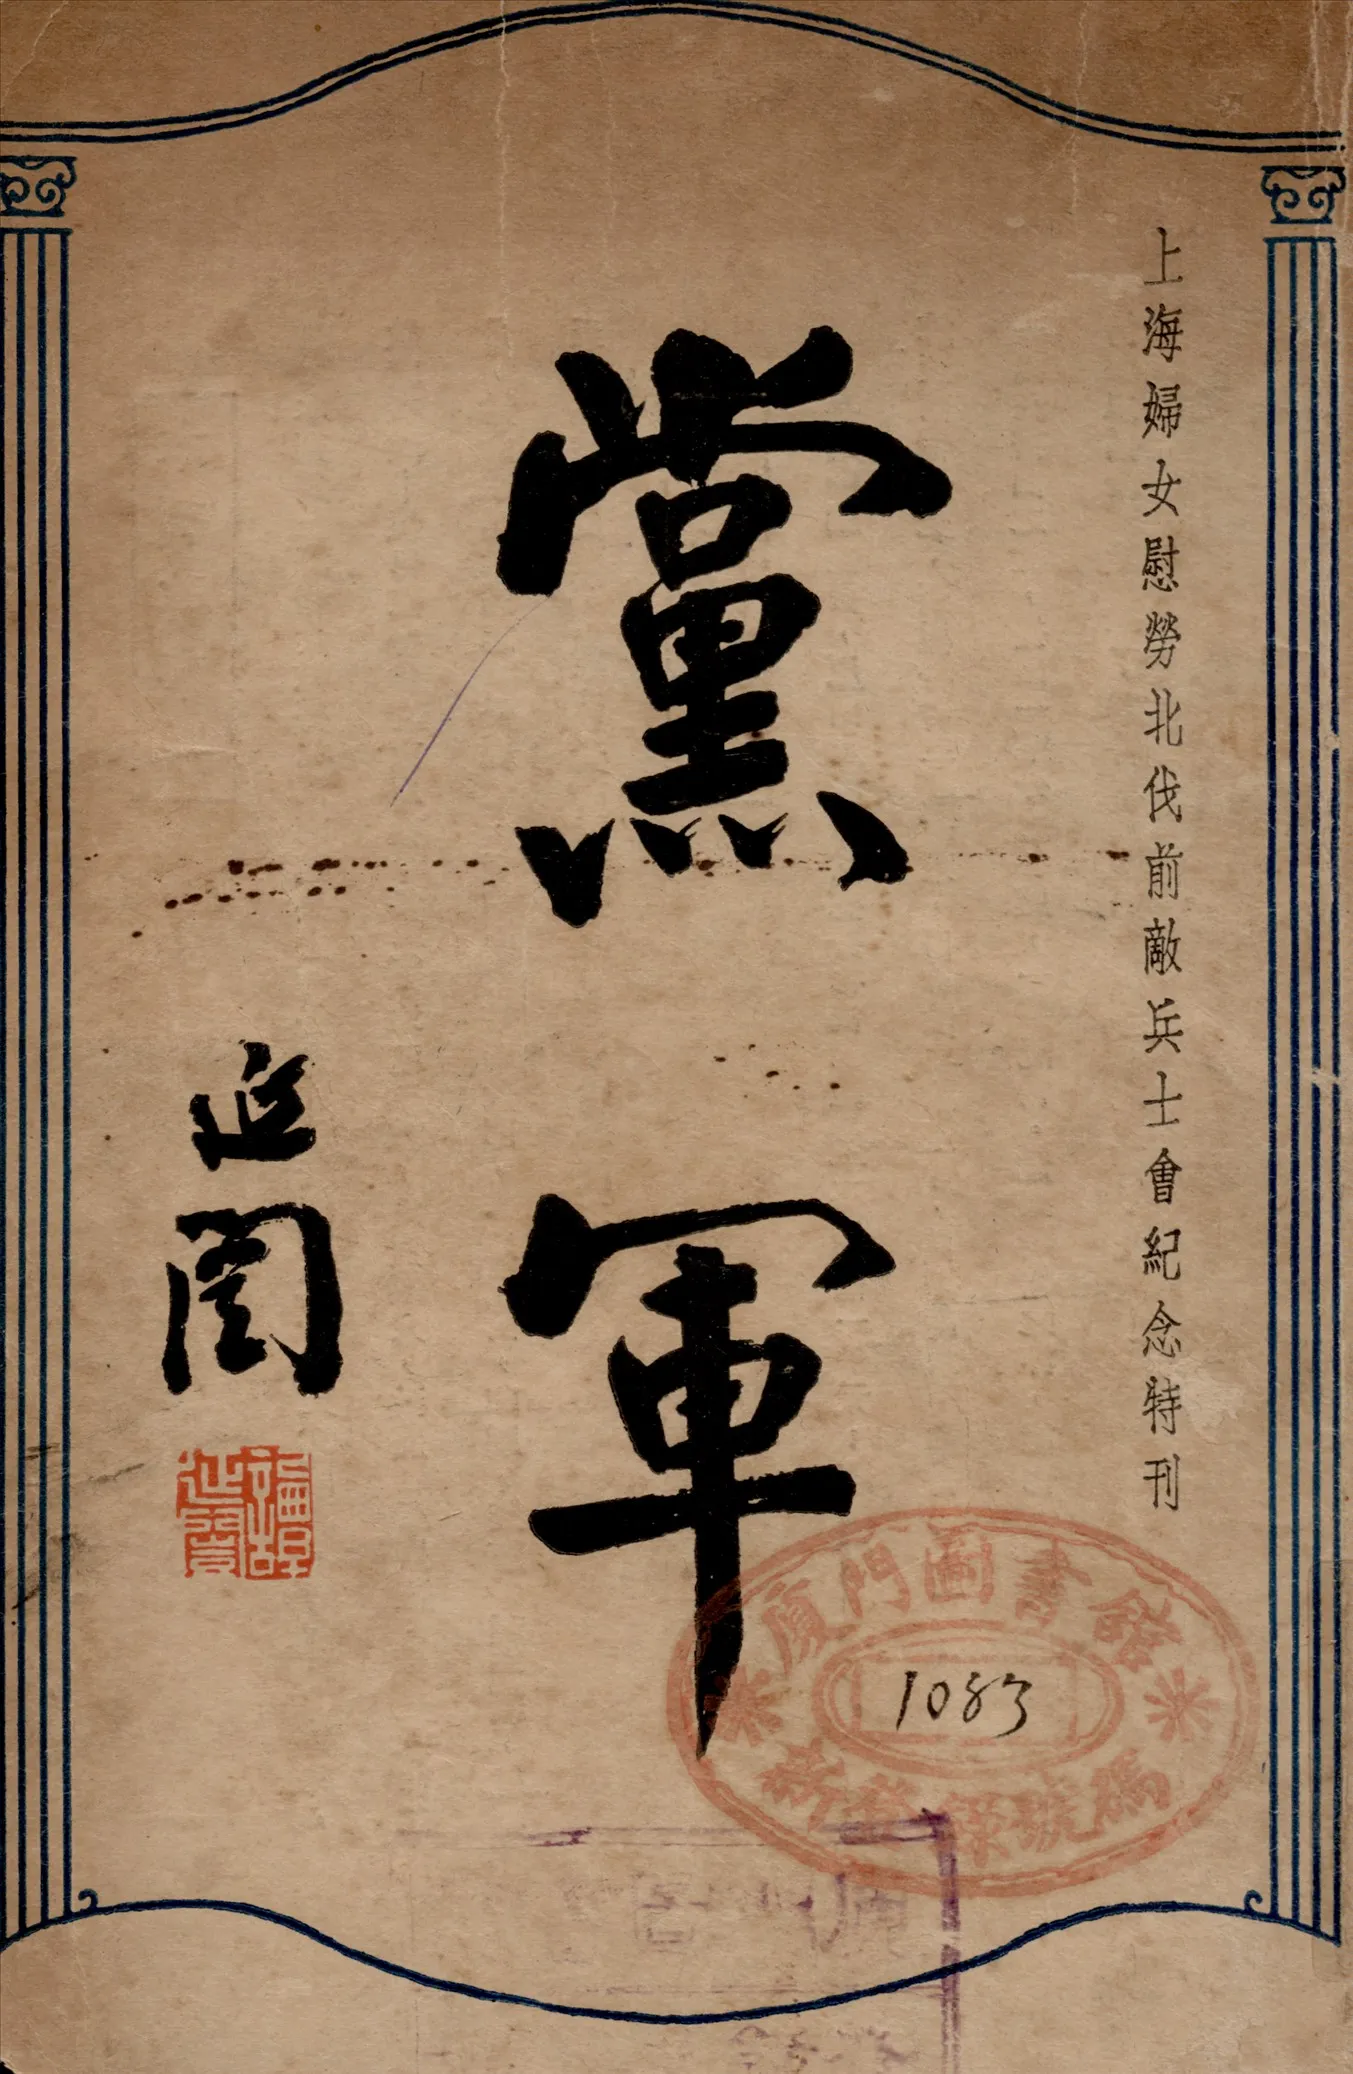 上海婦女慰勞北伐前敵兵士會紀念特刊
黨軍
延闓
譚延闓
廈門圖書館
1083
號碼